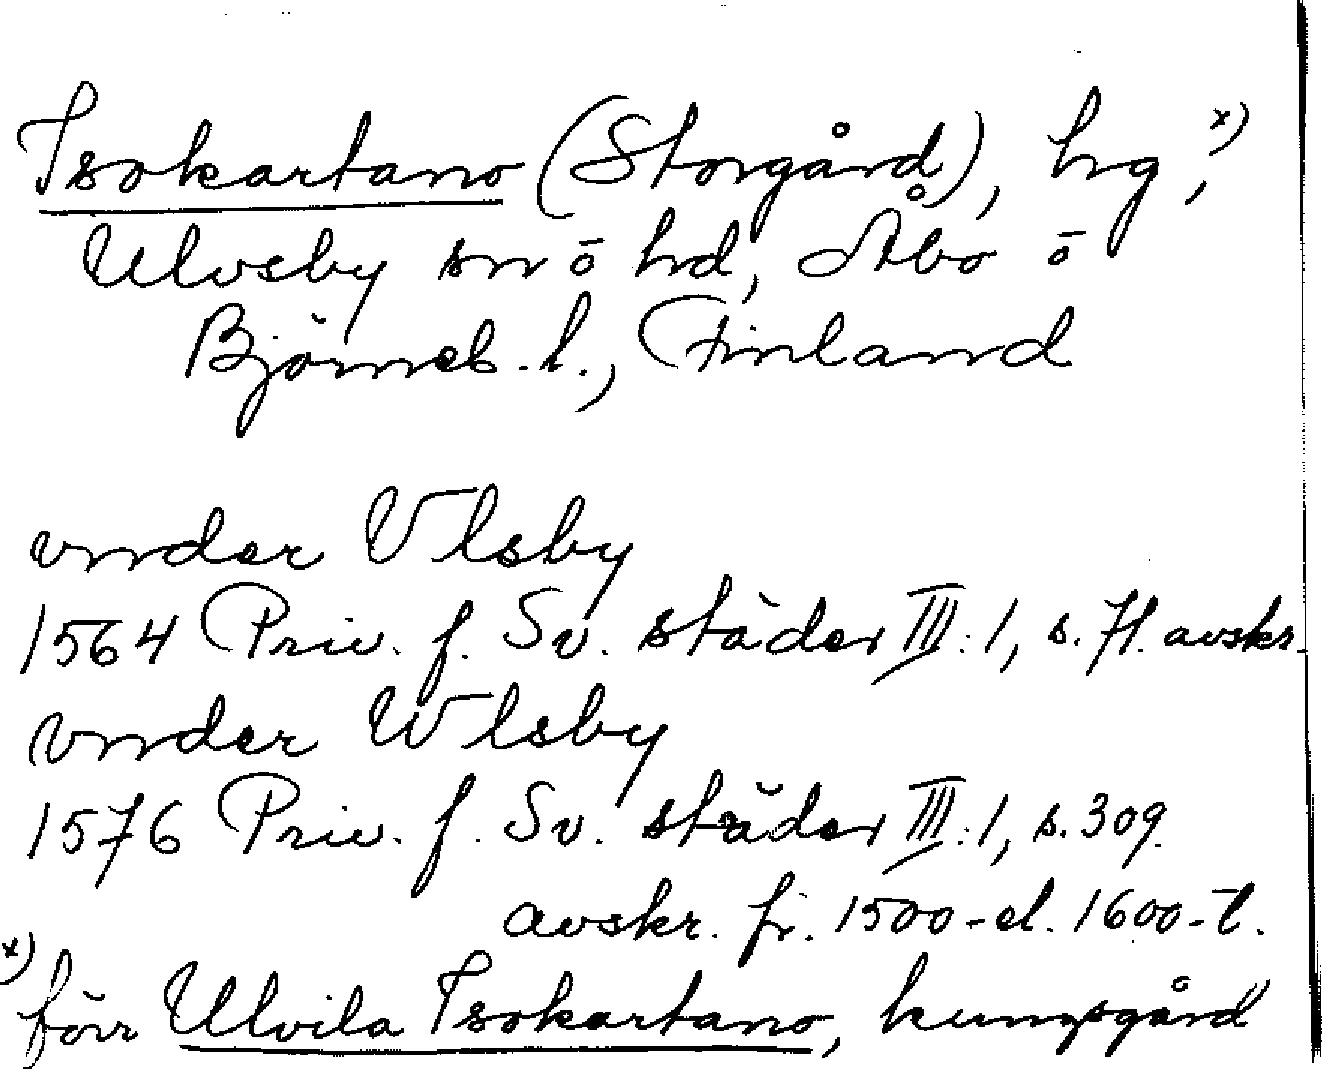 Isokartano (Storgård), hrg,ˣ⁾
Ulvsby sn ō hd, Åbo ō
Björneb. l., Finland
vnder Vlsby
1564 Priv. f. Sv. städer III:1, s. 71. avskr.
vnder Wlsby
1576 Priv. f. Sv. städer III:1, s. 309.
avskr. fr. 1500- el. 1600-t.
ˣ⁾ förr Ulvila Isokartano, kungsgård